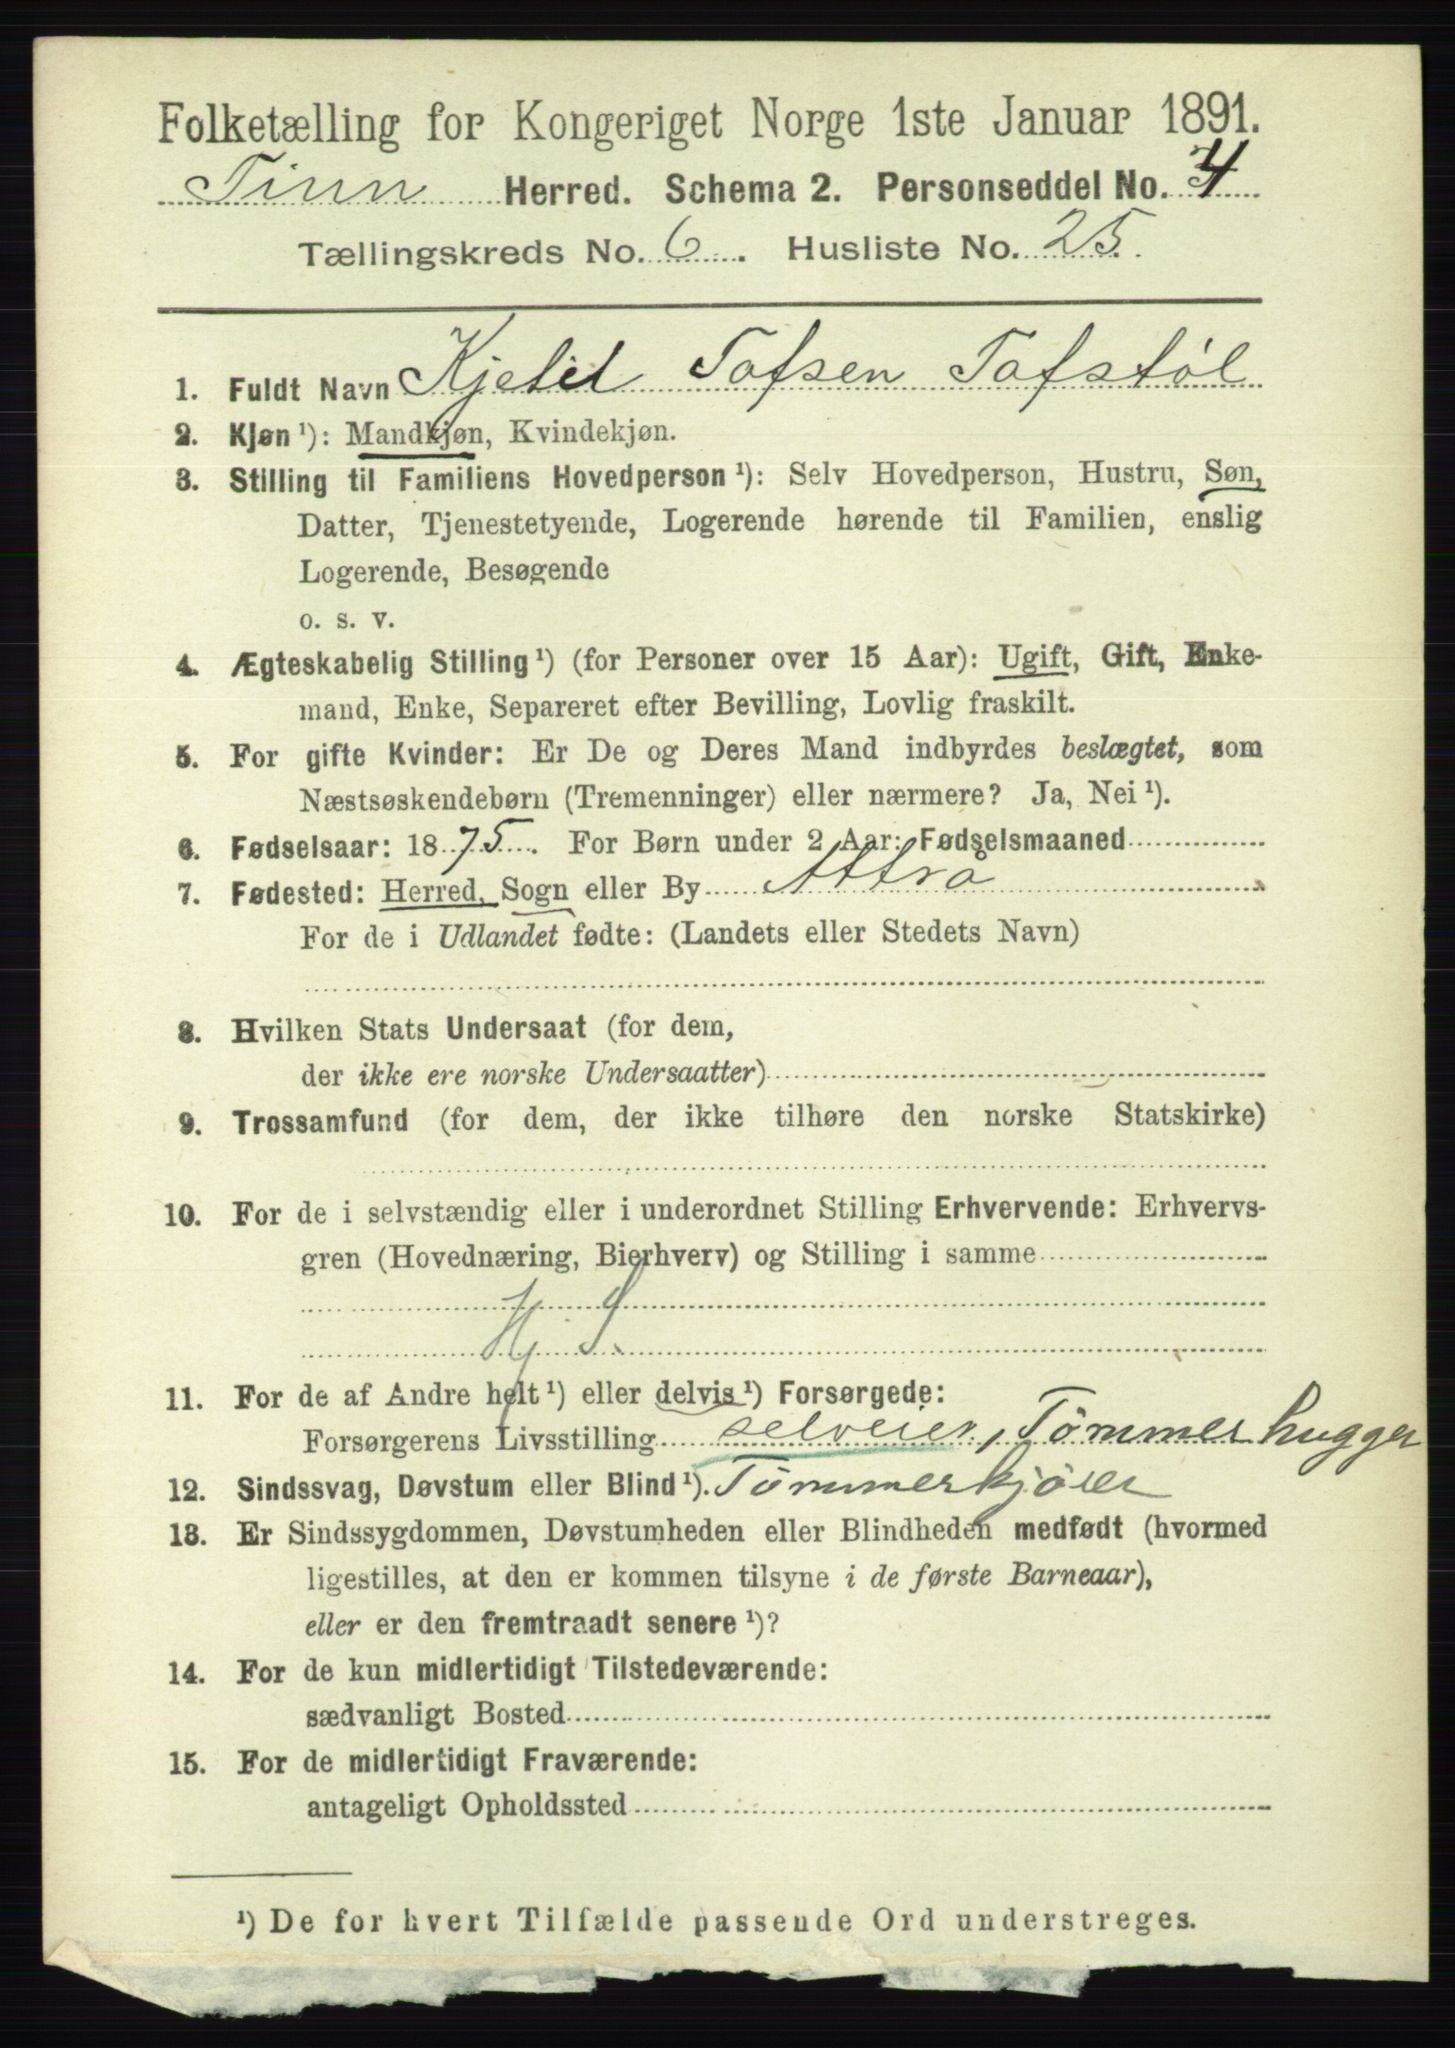 Folketælling for Kongeriget Norge 1ste Januar 1891.
Tinn Herred. Schema 2. Personseddel No. 4
Tællingskreds No. 6. Husliste No. 25.
1. Fuldt Navn Kjetil Tofsen Tofstøl
2. Kjøn ¹): Mandkjøn, Kvindekjøn.
3. Stilling til Familiens Hovedperson ¹): Selv Hovedperson, Hustru, Søn,
Datter, Tjenestetyende, Logerende hørende til Familien, enslig
Logerende, Besøgende
o. s. v.
4. Ægteskabelig Stilling ¹) (for Personer over 15 Aar): Ugift, Gift, Enke-
mand, Enke, Separeret efter Bevilling, Lovlig fraskilt.
5. For gifte Kvinder: Er De og Deres Mand indbyrdes beslægtet, som
Næstsøskendebørn (Tremenninger) eller nærmere? Ja, Nei ¹).
6. Fødselsaar: 1875. For Børn under 2 Aar: Fødselsmaaned
7. Fødested: Herred, Sogn eller By Attrå
For de i Udlandet fødte: (Landets eller Stedets Navn)
8. Hvilken Stats Undersaat (for dem,
der ikke ere norske Undersaatter)
9. Trossamfund (for dem, der ikke tilhøre den norske Statskirke)
10. For de i selvstændig eller i underordnet Stilling Erhvervende: Erhvervs-
gren (Hovednæring, Bierhverv) og Stilling i samme
Hj. S.
11. For de af Andre helt ¹) eller delvis ¹) Forsørgede:
Forsørgerens Livsstilling selveier, Tömmerhugger
12. Sindssvag, Døvstum eller Blind ¹). Tömmerkjörer
13. Er Sindssygdommen, Døvstumheden eller Blindheden medfødt (hvormed
ligestilles, at den er kommen tilsyne i de første Barneaar),
eller er den fremtraadt senere ¹)?
14. For de kun midlertidigt Tilstedeværende:
sædvanligt Bosted
15. For de midlertidigt Fraværende:
antageligt Opholdssted
¹) De for hvert Tilfælde passende Ord understreges.